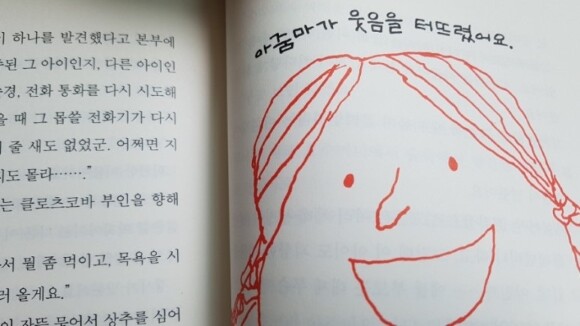 이 하나를 발견했다고 본부에
된 그 아이인지, 다른 아이인
경, 전화 통화를 다시 시도해
을 때 그 몹쓸 전화기가 다시
줄 새도 없었군. 어쩌면 지
도 몰라……."
는 클로츠코바 부인을 향해
서 뭘 좀 먹이고, 목욕을 시
러 올게요."
이 잔뜩 묻어서 상추를 심어
아줌마가 웃음을 터뜨렸어요.